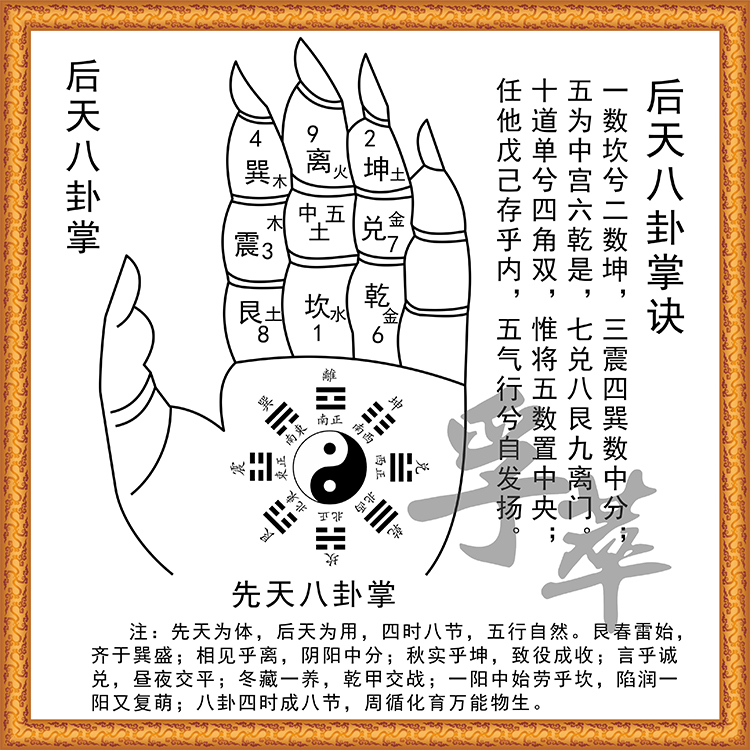 后天八卦掌诀
一数坎兮二数坤，三震四巽数中分；
五为中宫六乾是，七兑八艮九离门。
十道单兮四角双，惟将五数置中央；
任他戊己存乎内，五气行兮自发扬。
后天八卦掌
4
巽木
9
离火
2
坤土
木
震3
中五
土
金
兑7
艮土
8
坎水
1
乾金
6
離
南正
巽
南東
坤
南西
震
東正
兌
西正
艮
北東
乾
北西
北正
坎
孚萃
先天八卦掌
注：先天为体，后天为用，四时八节，五行自然。艮春雷始，
齐于巽盛；相见乎离，阴阳中分；秋实乎坤，致役成收；言乎诚
兑，昼夜交平；冬藏一养，乾甲交战；一阳中始劳乎坎，陷润一
阳又复萌；八卦四时成八节，周循化育万能物生。